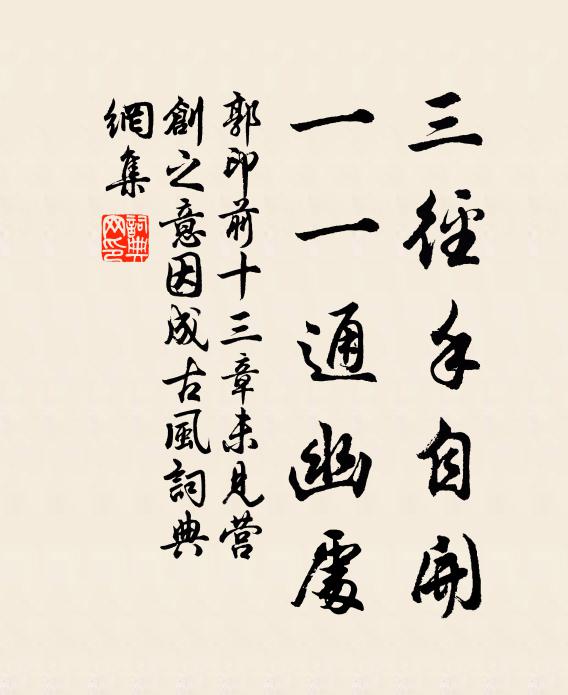 三徑手自開
一一通幽處
郭印前十三章未見营
創之意因成古風詞典
網集
詞典
网印